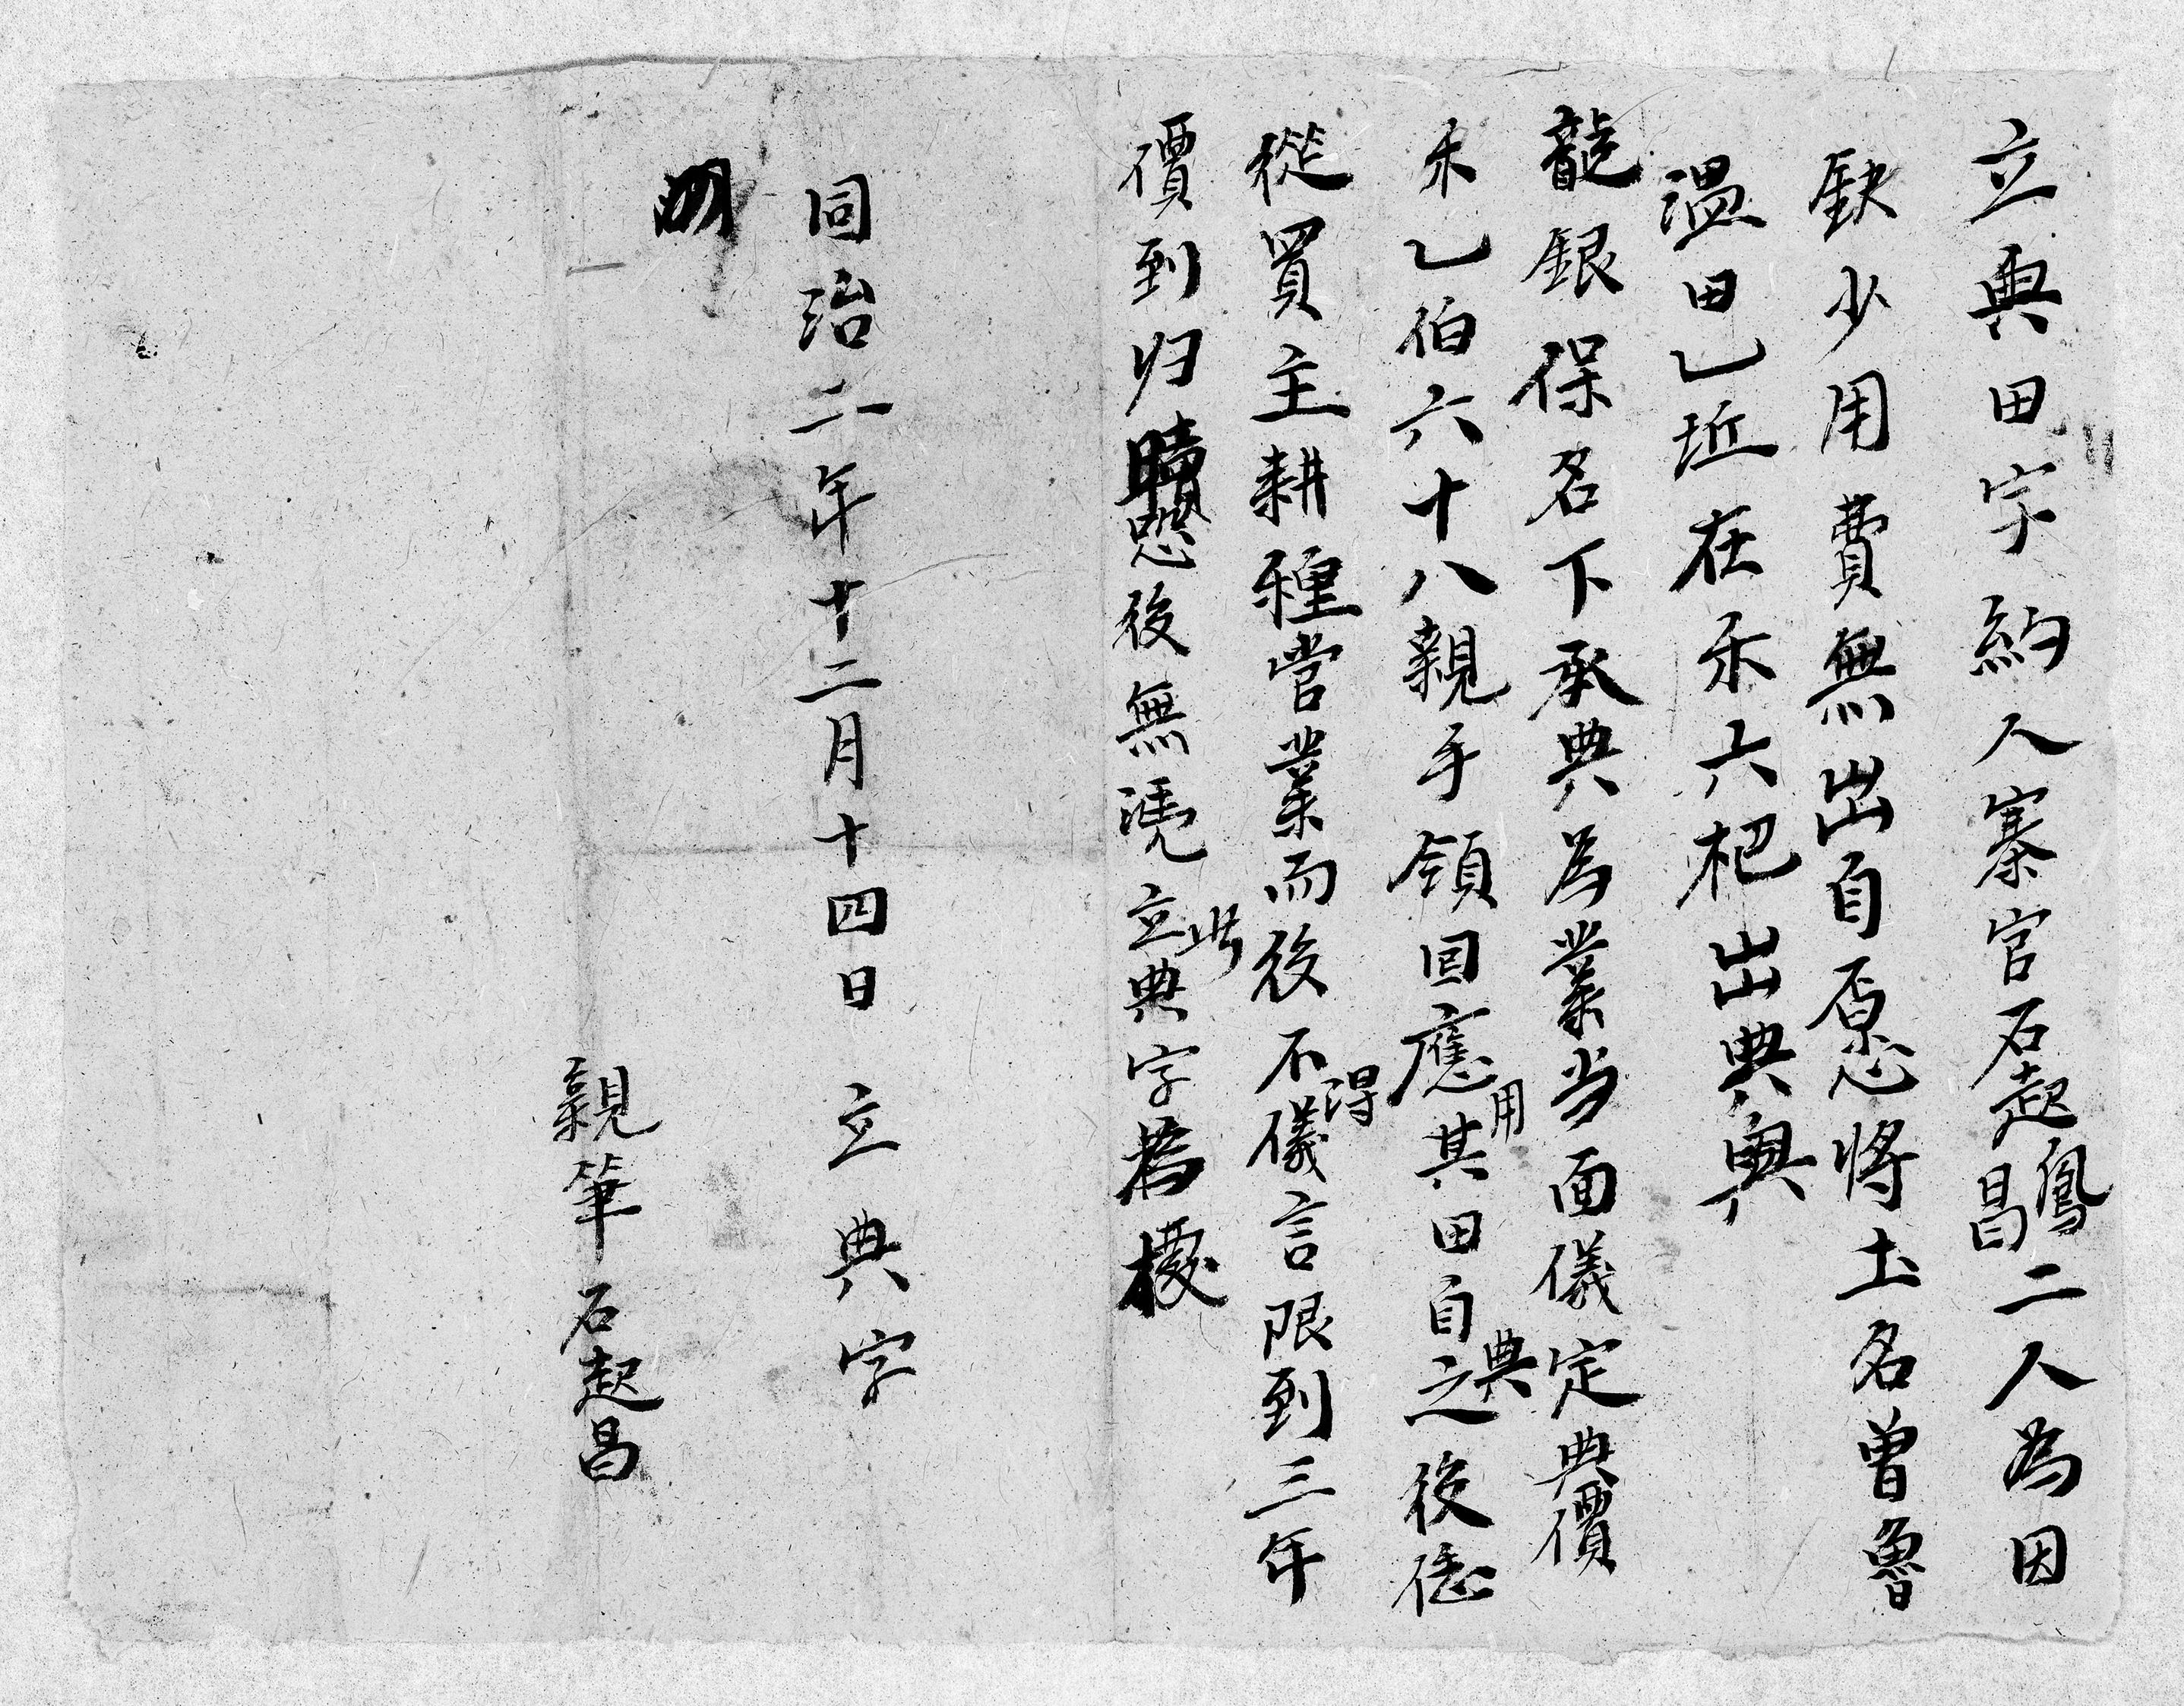 立典田字約人寨官石起鳳昌二人為因
缺少用費無出自愿將土名曾魯
溫田乙坵在禾六杷出典與
龍銀保名下承典為業当面儀定典價
禾乙伯六十八親手領回應用其田自典之後
從買主耕種営業而後不得儀言限到三年
價到归贖恐後無憑立此典字為㯫
同治二年十二月十四日 立典字
親筆石起昌